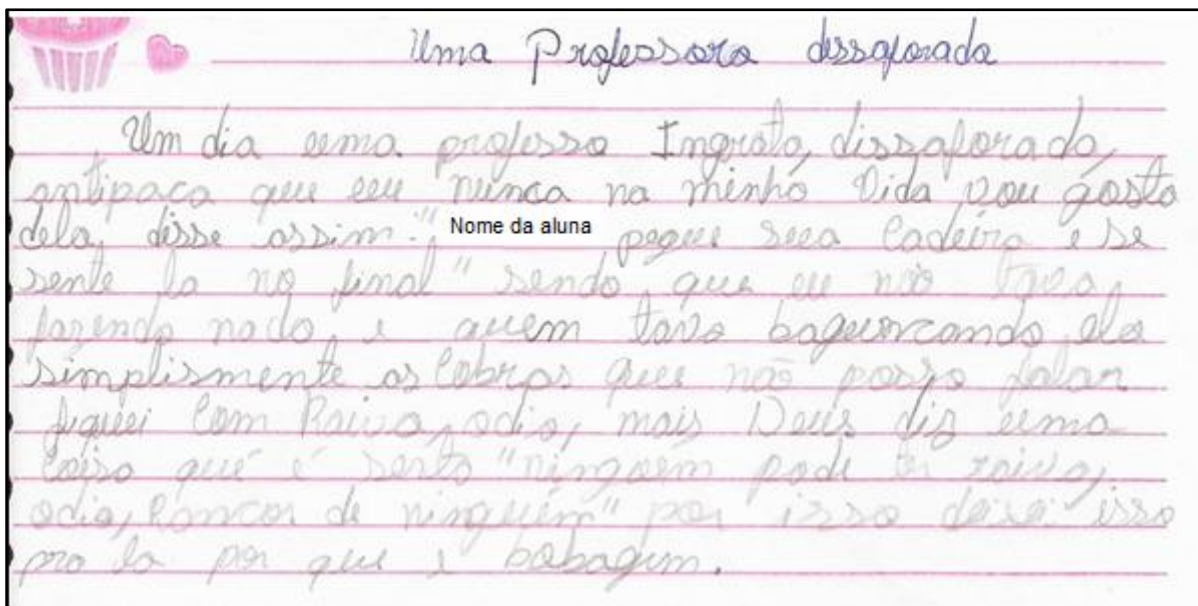 Uma Professora dessaforada
Um dia uma professo Ingrata, dissaforada,
antipaca que eu nunca na minha vida vou gosta
dela, disse assim: "Nome da aluna pegue sua cadeira e se
sente la no final" sendo que eu não tava
fazendo nada, e quem tava baguncando ela
simplismente as cobras que não posso falar
fiquei com Raiva, odio, mais Deus diz uma
coisa que é serto "ninguém pode ter raiva,
odio, Rancor de ninguém" por isso deixei isso
pra la por que é bobagem.